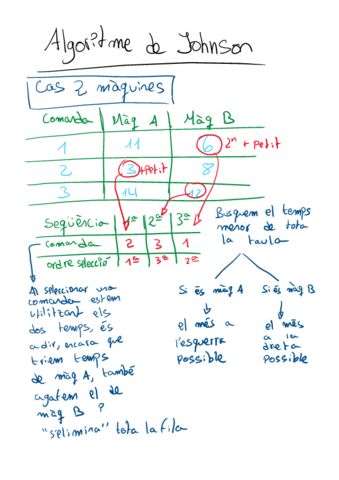 Algoritme de Johnson
Cas 2 màquines
Comanda Màq A Màq B
1 11 6 2n + petit
2 3 +petit 8
3 14 12
Seqüència 1ª 2ª 3ª
comanda 2 3 1
ordre selecció 1ª 3ª 2ª
Busquem el temps
menor de tota
la taula
Si és màq A
el més a
l'esquerra
possible
Si és màq B
el més
a la
dreta
possible
Al seleccionar una
comanda estem
utilitzant els
dos temps, és
a dir, encara que
triem temps
de màq A, també
agafem el de
màq B ?
"s'elimina" tota la fila